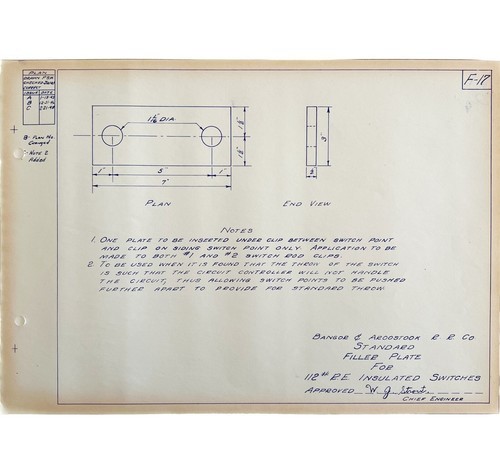 PLAN
CORRECT
ISSUE DATE
A
B
C
B - PLAN NO.
CHANGED
NOTE 2
ADDED
F-17
DIA.
1 1/2"
1 1/2"
3"
1"
5"
1"
7"
PLAN
END VIEW
NOTES
1. ONE PLATE TO BE INSERTED UNDER CLIP BETWEEN SWITCH POINT
AND CLIP ON SIDING SWITCH POINT ONLY. APPLICATION TO BE
MADE TO BOTH #1 AND #2 SWITCH ROD CLIPS.
2. TO BE USED WHEN IT IS FOUND THAT THE THROW OF THE SWITCH
IS SUCH THAT THE CIRCUIT CONTROLLER WILL NOT HANDLE
THE CIRCUIT, THUS ALLOWING SWITCH POINTS TO BE PUSHED
FURTHER APART TO PROVIDE FOR STANDARD THROW.
BANGOR & AROOSTOOK R. R. CO
STANDARD
FILLER PLATE
FOR
112# R.E. INSULATED SWITCHES
APPROVED W. J. Strout
CHIEF ENGINEER